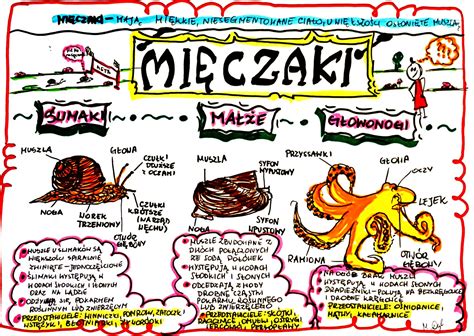 MIĘCZAKI – MAJĄ MIĘKKIE, NIESEGMENTOWANE CIAŁO, U WIĘKSZOŚCI OSŁONIĘTE MUSZLĄ
META
MIĘCZAKI
ŚLIMAKI
MAŁŻE
GŁOWONOGI
MUSZLA
GŁOWA
CZUŁKI
DŁUŻSZE
Z OCZAMI
CZUŁKI
KRÓTSZE
(NARZĄD
WĘCHU)
OTWÓR
GĘBOWY
WOREK
TRZEWIOWY
NOGA
MUSZLA
SYFON
WYPUSTOWY
SYFON
WPUSTOWY
NOGA
PRZYSSAWKI
GŁOWA
OCZY
LEJEK
OTWÓR
GĘBOWY
RAMIONA
MUSZLE ŚLIMAKÓW SĄ
WIĘKSZOŚCI SPIRALNIE
ZWINIĘTE – JEDNOCZĘŚCIOWE
ŚLIMAKI WYSTĘPUJĄ W
WODACH SŁODKICH I SŁONYCH
ORAZ NA LĄDZIE
ODŻYWIAJĄ SIĘ POKARMEM
ROŚLINNYM LUB ZWIERZĘCYM
PRZEDSTAWICIELE: WINNICZKI, POMRÓW, ZATOCZKI,
WSTĘŻYKI, BŁOTNIARKI, ŻYWORÓDKI
MUSZLE ZBUDOWANE Z
DWÓCH POŁĄCZONYCH
ZE SOBĄ POŁÓWEK
WYSTĘPUJĄ W WODACH
SŁODKICH I SŁONYCH
ODCEDZAJĄ Z WODY
DROBNE CZĄSTKI
POKARMU ROŚLINNEGO
LUB ZWIERZĘCEGO
PRZEDSTAWICIELE: SKÓJKI,
RACICZNICE, OMUŁKI, OSTRYGI
PERŁOPŁAWY
NA OGÓŁ BRAK MUSZLI
WYSTĘPUJĄ W WODACH SŁONYCH
DRAPIEŻNIKI – POLUJĄ NA
PRZEDSTAWICIELE: OŚMIORNICE,
MĄTWY, KAŁAMARNICE